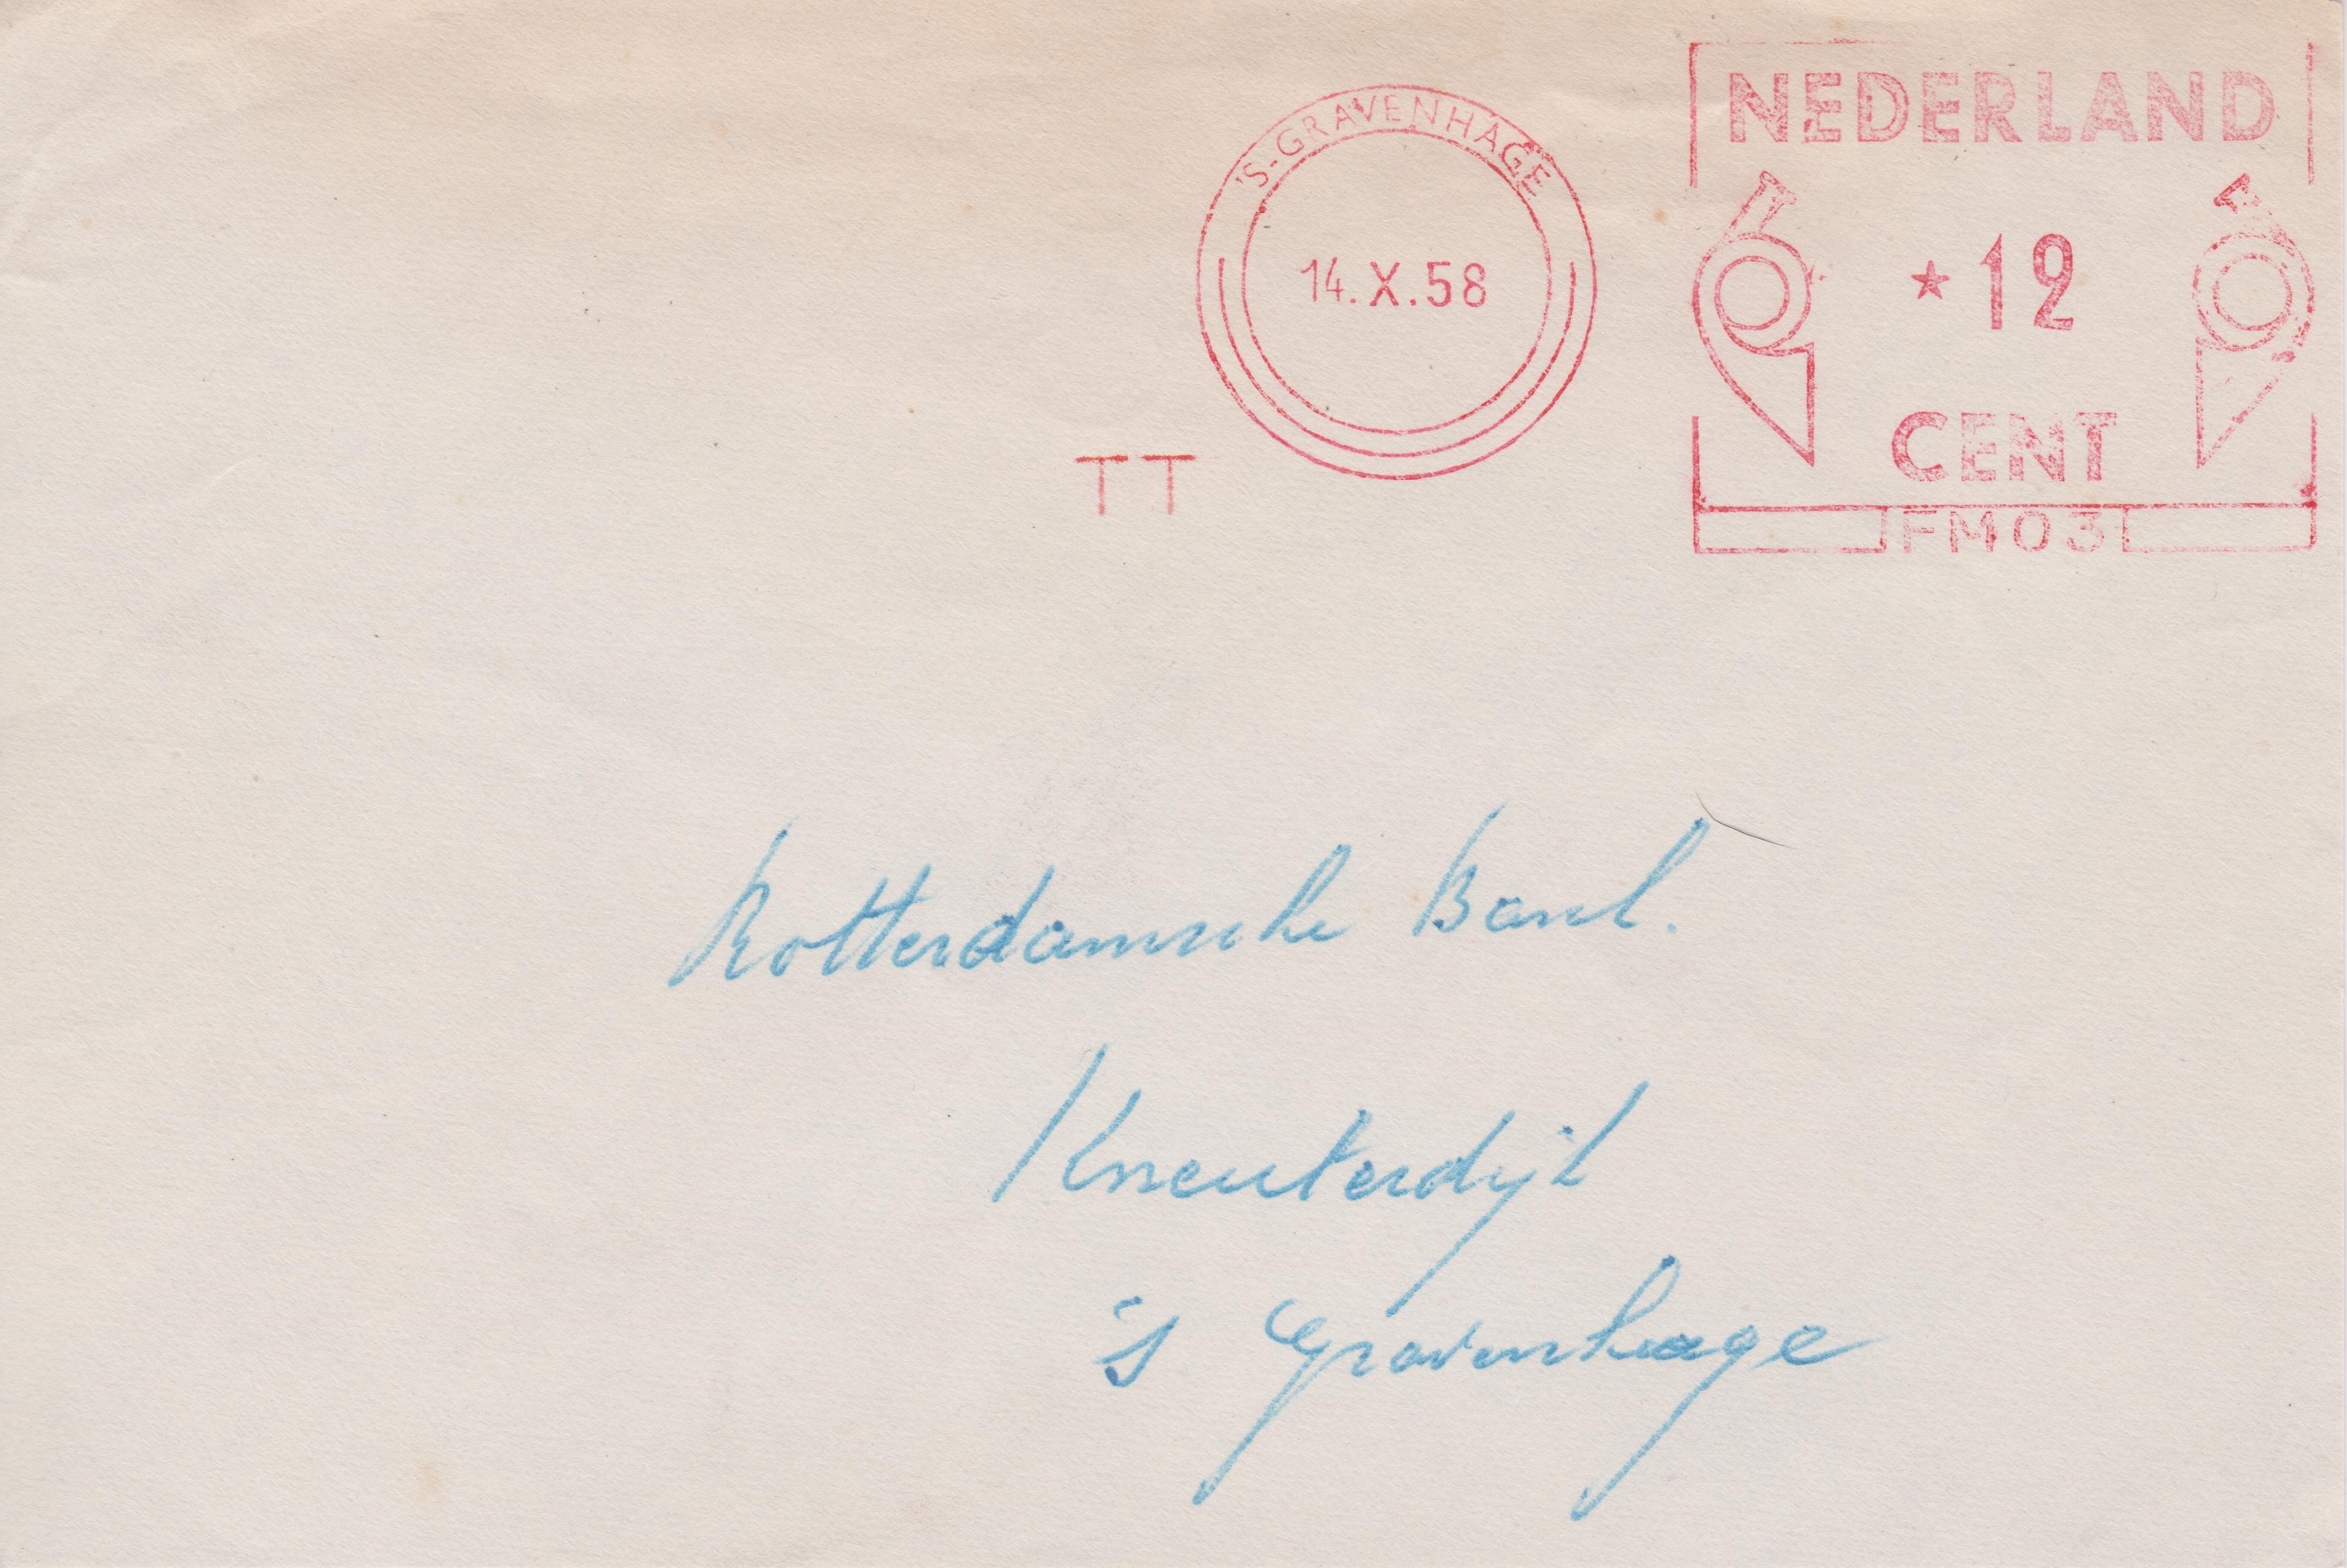 'S-GRAVENHAGE
14.X.58
NEDERLAND
* 12
CENT
FM03
TT
Rotterdamsche Bank.
Kneuterdijk
's Gravenhage